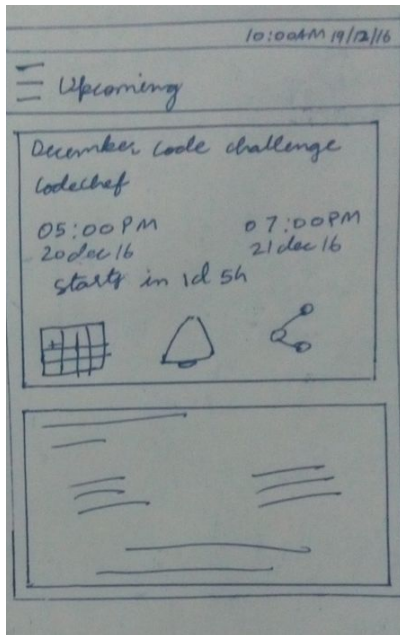 10:00AM 19/12/16
Upcoming
December code challenge
Codechef
05:00 PM 07:00 PM
20 dec 16 21 dec 16
starts in 1d 5h